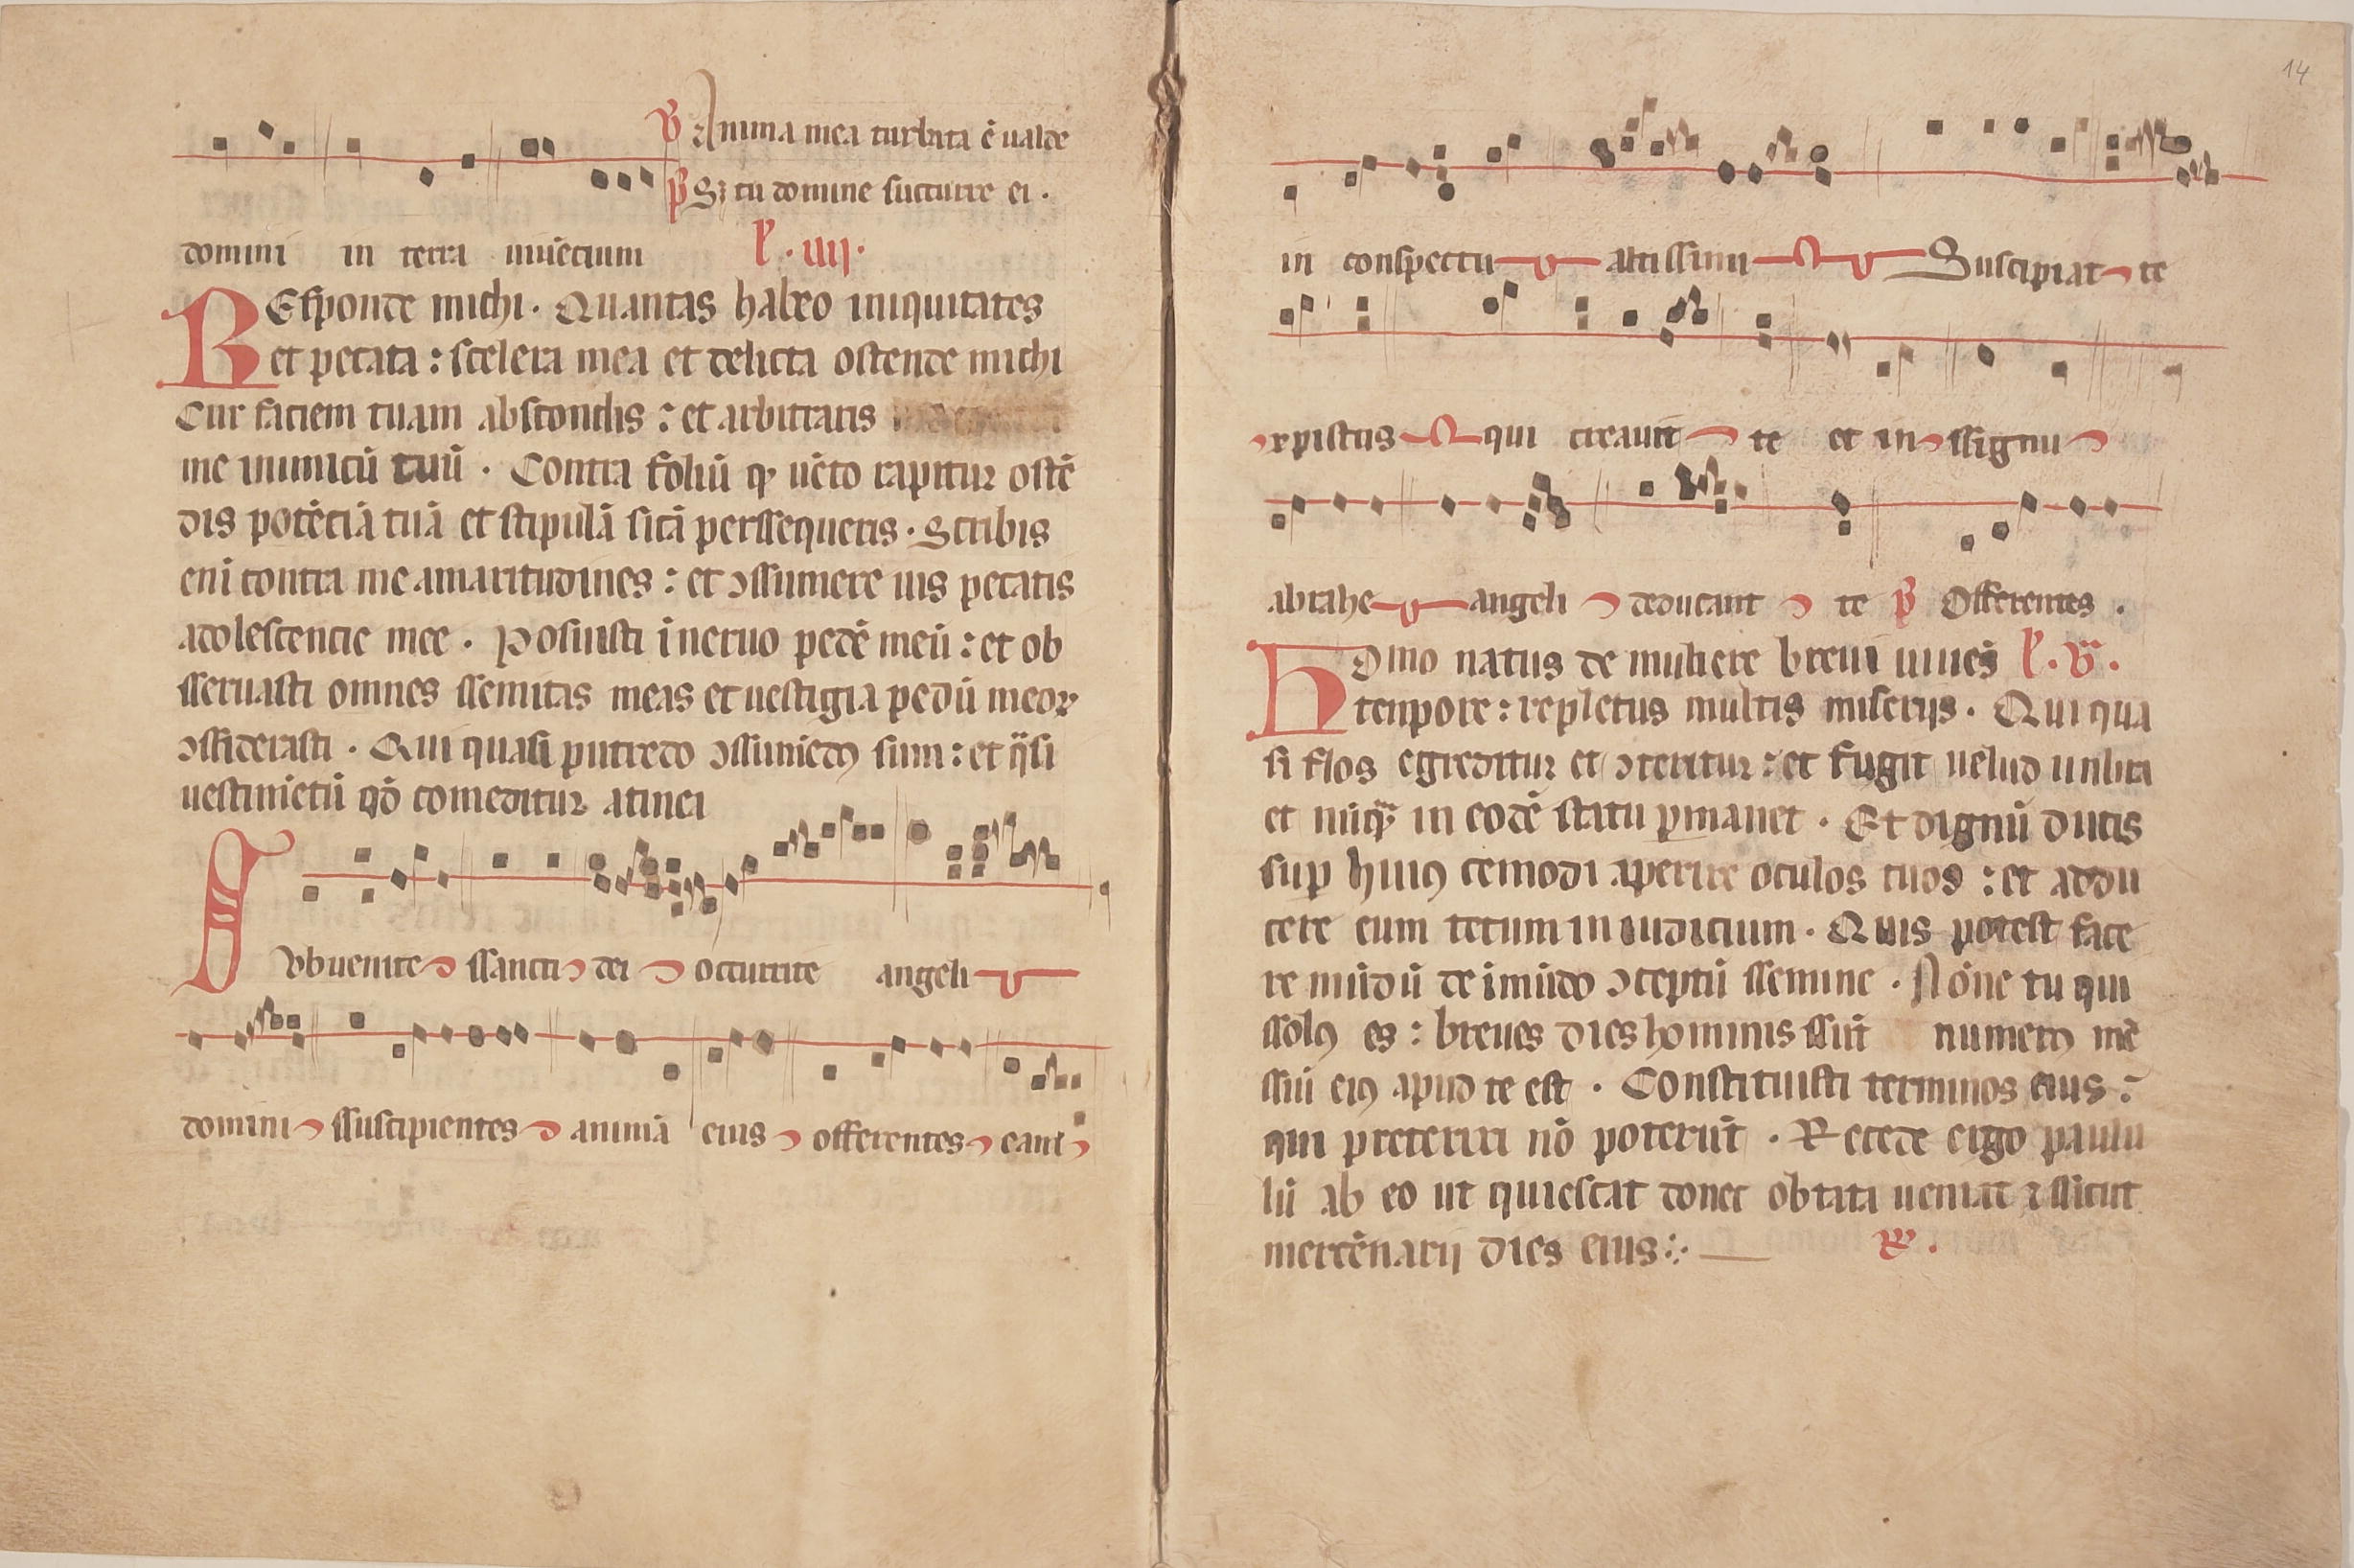 ℣ Anima mea turbata ē ualde
p̃ Sꝫ tu domine succurre ei .
domini in terra uiuēcium
l̃ . iiij .
REsponde michi . Quantas habeo iniquitates
et pecata : scelera mea et delicta ostende michi
Cur faciem tuam abscondis : et arbitraris
me inimicū tuū . Contra foliū qͥ uēto rapitur ostē
dis potēciā tuā et stipulā sicā perssequeris . Scribis
eni contra me amaritudines : et ↄssumere uis pecatis
adolescencie mee . Posuisti ī neruo pedē meū : et ob
sseruasti omnes ssemitas meas et uestigia pedū meoꝝ
ↄssiderasti . Qui quasi putredo ↄssumēdꝰ sum : et q̈si
uestimētū qd̄ comeditur atinei
Subuenite ssancti dei occurrite angeli
domini ssuscipientes animā eius offerentes eam
14
in conspectu altissimi Suscipiat te
xpistus qui creauit te et in ssignu
abrahe angeli deducant te p̃ Offerentes .
Homo natus de muliere breui uiuēs l̃ . v̄ .
tempore : repletus multis miserijs . Qui qua
si flos egreditur et ↄteritur : et fugit uelud umbra
et nūqͣꝫ in eodē statu ꝑmanet . Et dignū ducis
suꝑ huiꝰcemodi aperire oculos tuos : et addu
cere eum tecum in iudicium . Quis potest face
re mūdū de īmūdo ↄceptū ssemine . Nōne tu qui
ssolꝰ es : breues dies hominis ssūt numerꝰ mē
ssiū eiꝰ apud te est . Constituisti terminos eius :
qui preteriri nō poterūt . Recede ergo paulu
lū ab eo ut quiescat donec obtata ueniat ⁊ ssicut
mercēnarij dies eius :. ℟ .